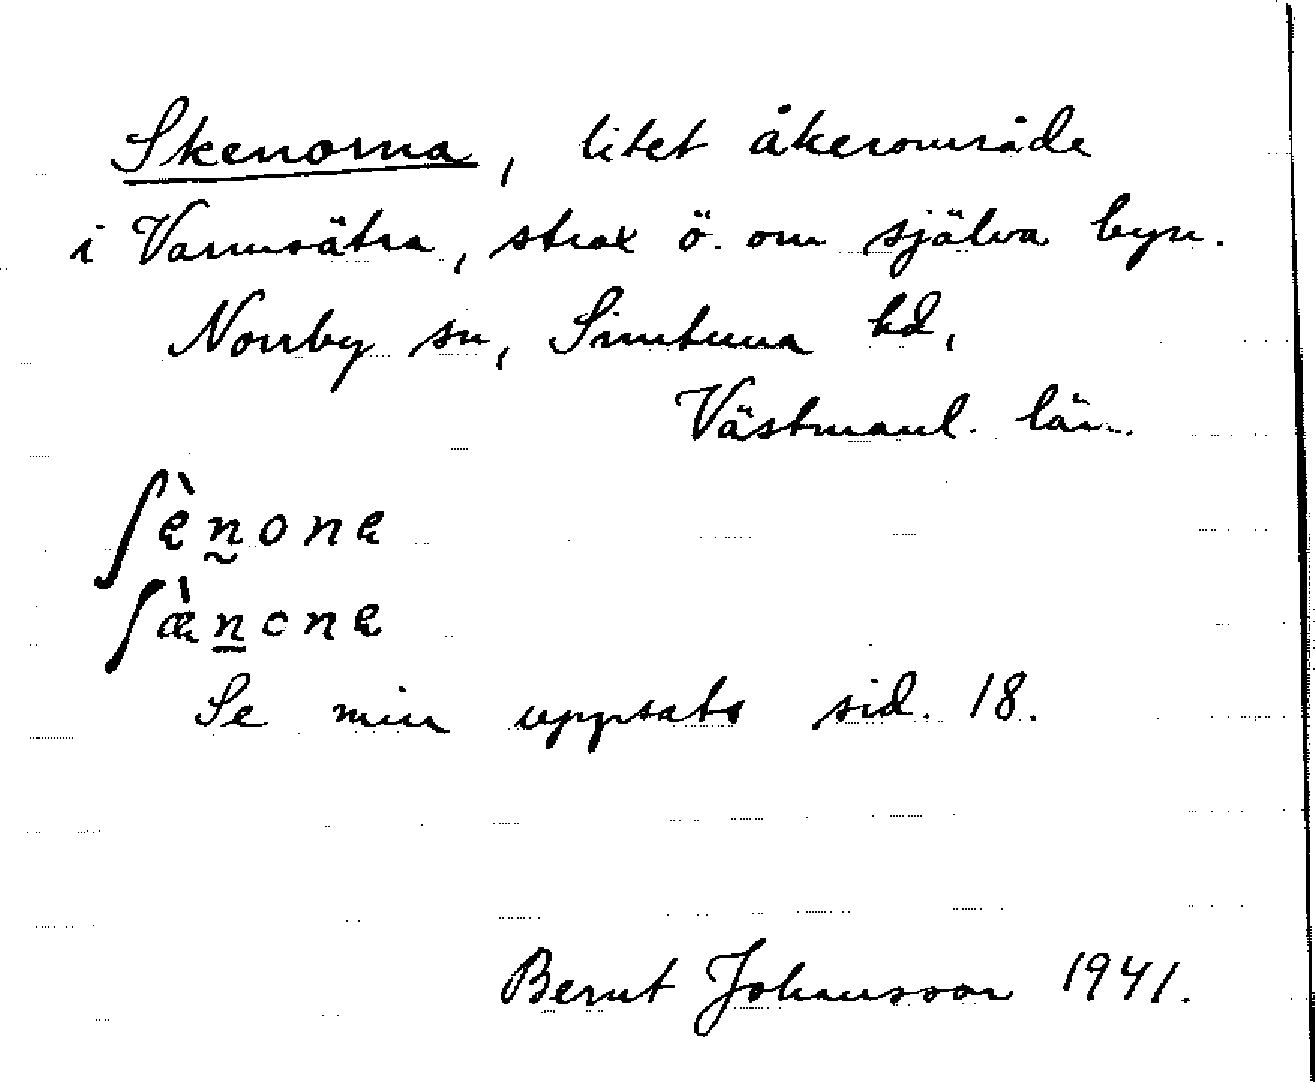 Skenorna, litet åkerområde
i Varmsätra, strax ö. om själva byn.
Norrby sn, Simtuna hd,
Västmanl. län.
ʃènone
ʃæ̀none
Se min uppsats sid. 18.
Bernt Johansson 1941.